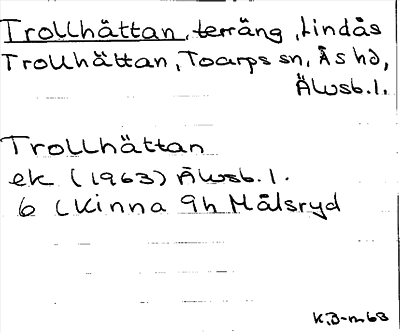 Trollhättan, terräng, Lindås
Trollhättan, Toarps sn, Ås hd,
Älvsb. l.
Trollhättan
ek (1963) Älvsb. l.
6 C Kinna 9h Målsryd
KB-m 68